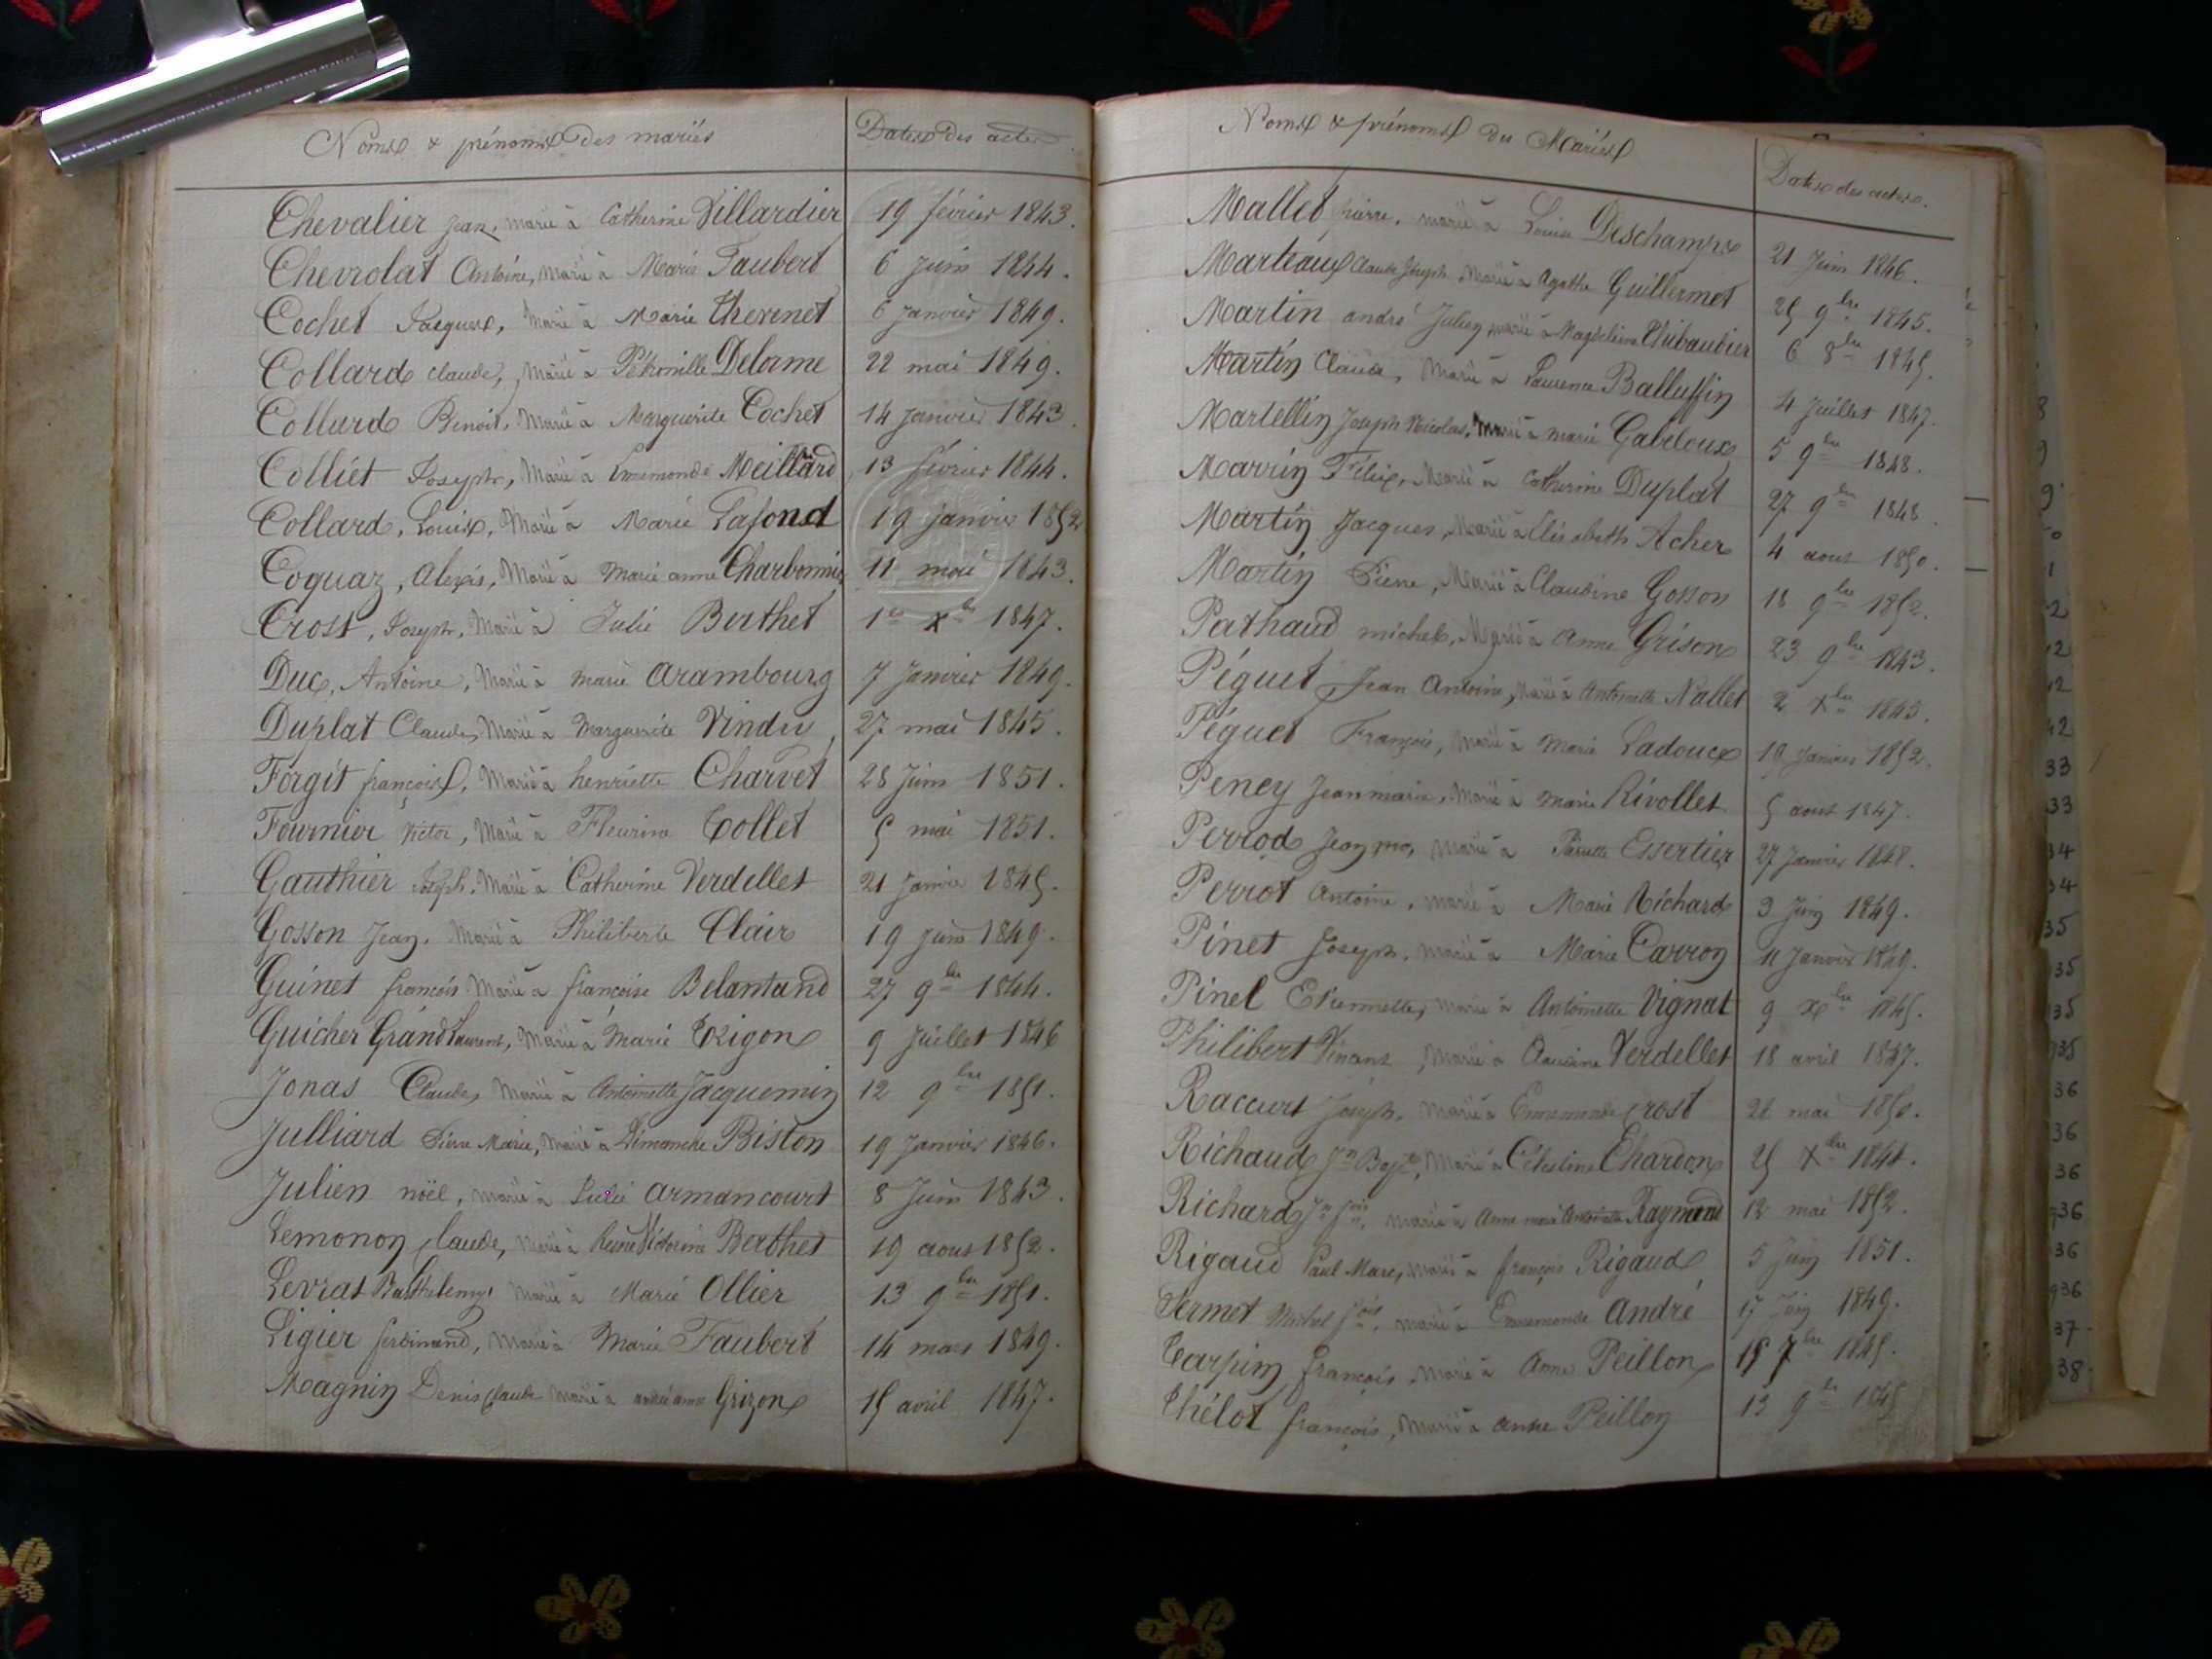 Noms & prénoms des mariés Dates des actes.
Chevalier Jean, marié à Catherine Villardier 19 février 1843.
Chevrolat Antoine, marié à Marie Taubert 6 Juin 1844.
Cochet Jacques, marié à Marie Thevenet 6 Janvier 1849.
Collard Claude, marié à Pétronille Delorme 22 mai 1849.
Collard Benoit, marié à Marguerite Cochet 14 Janvier 1843.
Colliet Joseph, marié à Ennemonde Meillard 13 février 1844.
Collard, Louis, marié à Marie Lafond 19 janvier 1852
Coquaz, Alexis, marié à Marie anne Charbonnier 11 mai 1843.
Crost, Joseph, marié à Julie Berthet 1er Xbre 1847.
Duc, Antoine, marié à marie Arambourg 7 Janvier 1849.
Duplat Claude, marié à Marguerite Vindry 27 mai 1845.
Forgit françois, marié à henriette Charvet 28 Juin 1851.
Fournier Victor, marié à Fleurine Collet 5 mai 1851.
Gauthier Joseph, marié à Catherine Verdellet 21 Janvier 1845.
Gosson Jean, marié à Philiberte Clair 19 Juin 1849.
Guinet françois marié à françoise Belantand 27 9bre 1844.
Guicher Grand Laurent, marié à Marie Trigon 9 Juillet 1846
Jonas Claude, marié à Antoinette Jacquemin 12 9bre 1851.
Julliard Pierre Marie, marié à Dimanche Biston 19 Janvier 1846.
Julien noël, marié à Julie Armancourt 8 Juin 1843.
Lemonon Claude, marié à Reine Victorine Berthet 19 aout 1852.
Levrat Barthelemy, marié à Marie Ollier 13 9bre 1851.
Ligier ferdinand, marié à Marie Faubert 14 mars 1849.
Magnin Denis Claude marié à anne Grizon 15 avril 1847.
Noms & prénoms des Mariés Dates des actes.
Mallet pierre, marié à Louise Deschamps 21 Juin 1846.
Marteaux Claude Joseph marié à Agathe Guillermet 25 9bre 1845.
Martin andré Julien marié à Magdeleine Thibaudier 6 8bre 1845.
Martin Claude, marié à Laurence Balluffin 4 Juillet 1847.
Martellin Joseph Nicolas, marié à marie Gabeloux 5 9bre 1848.
Marrin Félix, marié à Catherine Duplat 27 9bre 1848.
Martin Jacques, marié à Elisabeth Acher 4 aout 1850.
Martin Pierre, marié à Claudine Gosson 18 9bre 1852.
Pathaud michel, marié à Anne Grison 23 9bre 1843.
Péguet Jean Antoine, marié à Antoinette Nallet 2 Xbre 1843.
Péguet François, marié à Marie Ladoux 19 Janvier 1852.
Peney Jeanmarie, marié à Marie Rivollet 5 aout 1847.
Perrod Jean, marié à Pierrette Essertier 27 Janvier 1848.
Perrot Antoine, marié à Marie Richard 3 Juin 1849.
Pinet Joseph, marié à Marie Carron 11 Janvier 1849.
Pinel Etiennette, marié à Antoinette Vignat 9 Xbre 1845.
Philibert Vincent, marié à Claudine Verdellet 18 avril 1847.
Raccurt Joseph, marié à Ennemonde Crost 26 mai 1850.
Richaud Jn Bapte, marié à Célestine Chardon 25 Xbre 1844.
Richard Jn fois, marié à Anne marie Antoinette Raymond 12 mai 1852.
Rigaud Paul Marc, marié à françoise Rigaud 5 Juin 1851.
Sermet Michel fois, marié à Ennemonde André 17 Juin 1849.
Tarpin françois, marié à Anne Peillon 15 7bre 1845.
Thélot françois, marié à Anne Peillon 13 9bre 1845